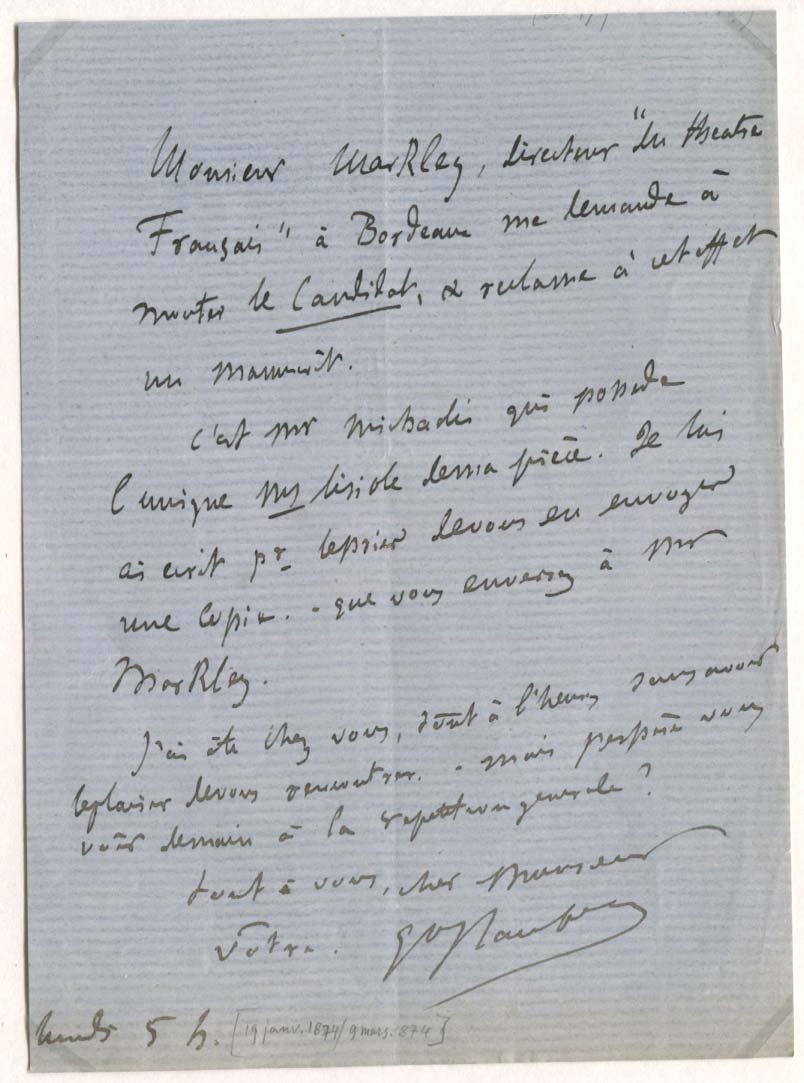 Monsieur MarKley, directeur "du theatre
Français" à Bordeaux me demande à
monter le Candidat, & reclame à cet effet
un manuscrit.
C'est mr michaelis qui possede
l'unique ms lisible de ma pièce. Je lui
ai ecrit pr le prier de vous en envoyer
une copie. - que vous enverrez à Mr
MarKley.
J'ai été chez vous, tout à l'heure sans avoir
le plaisir de vous rencontrer. - mais j'espère vous
voir demain à la repetition generale?
tout à vous, cher Monsieur
votre. Gve Flaubert
lundi 5 h. [19 janv. 1874/9 mars. 874]